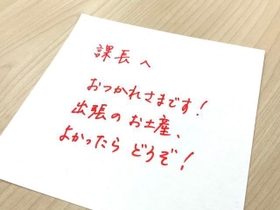 課長へ
おつかれさまです!
出張のお土産、
よかったら どうぞ!